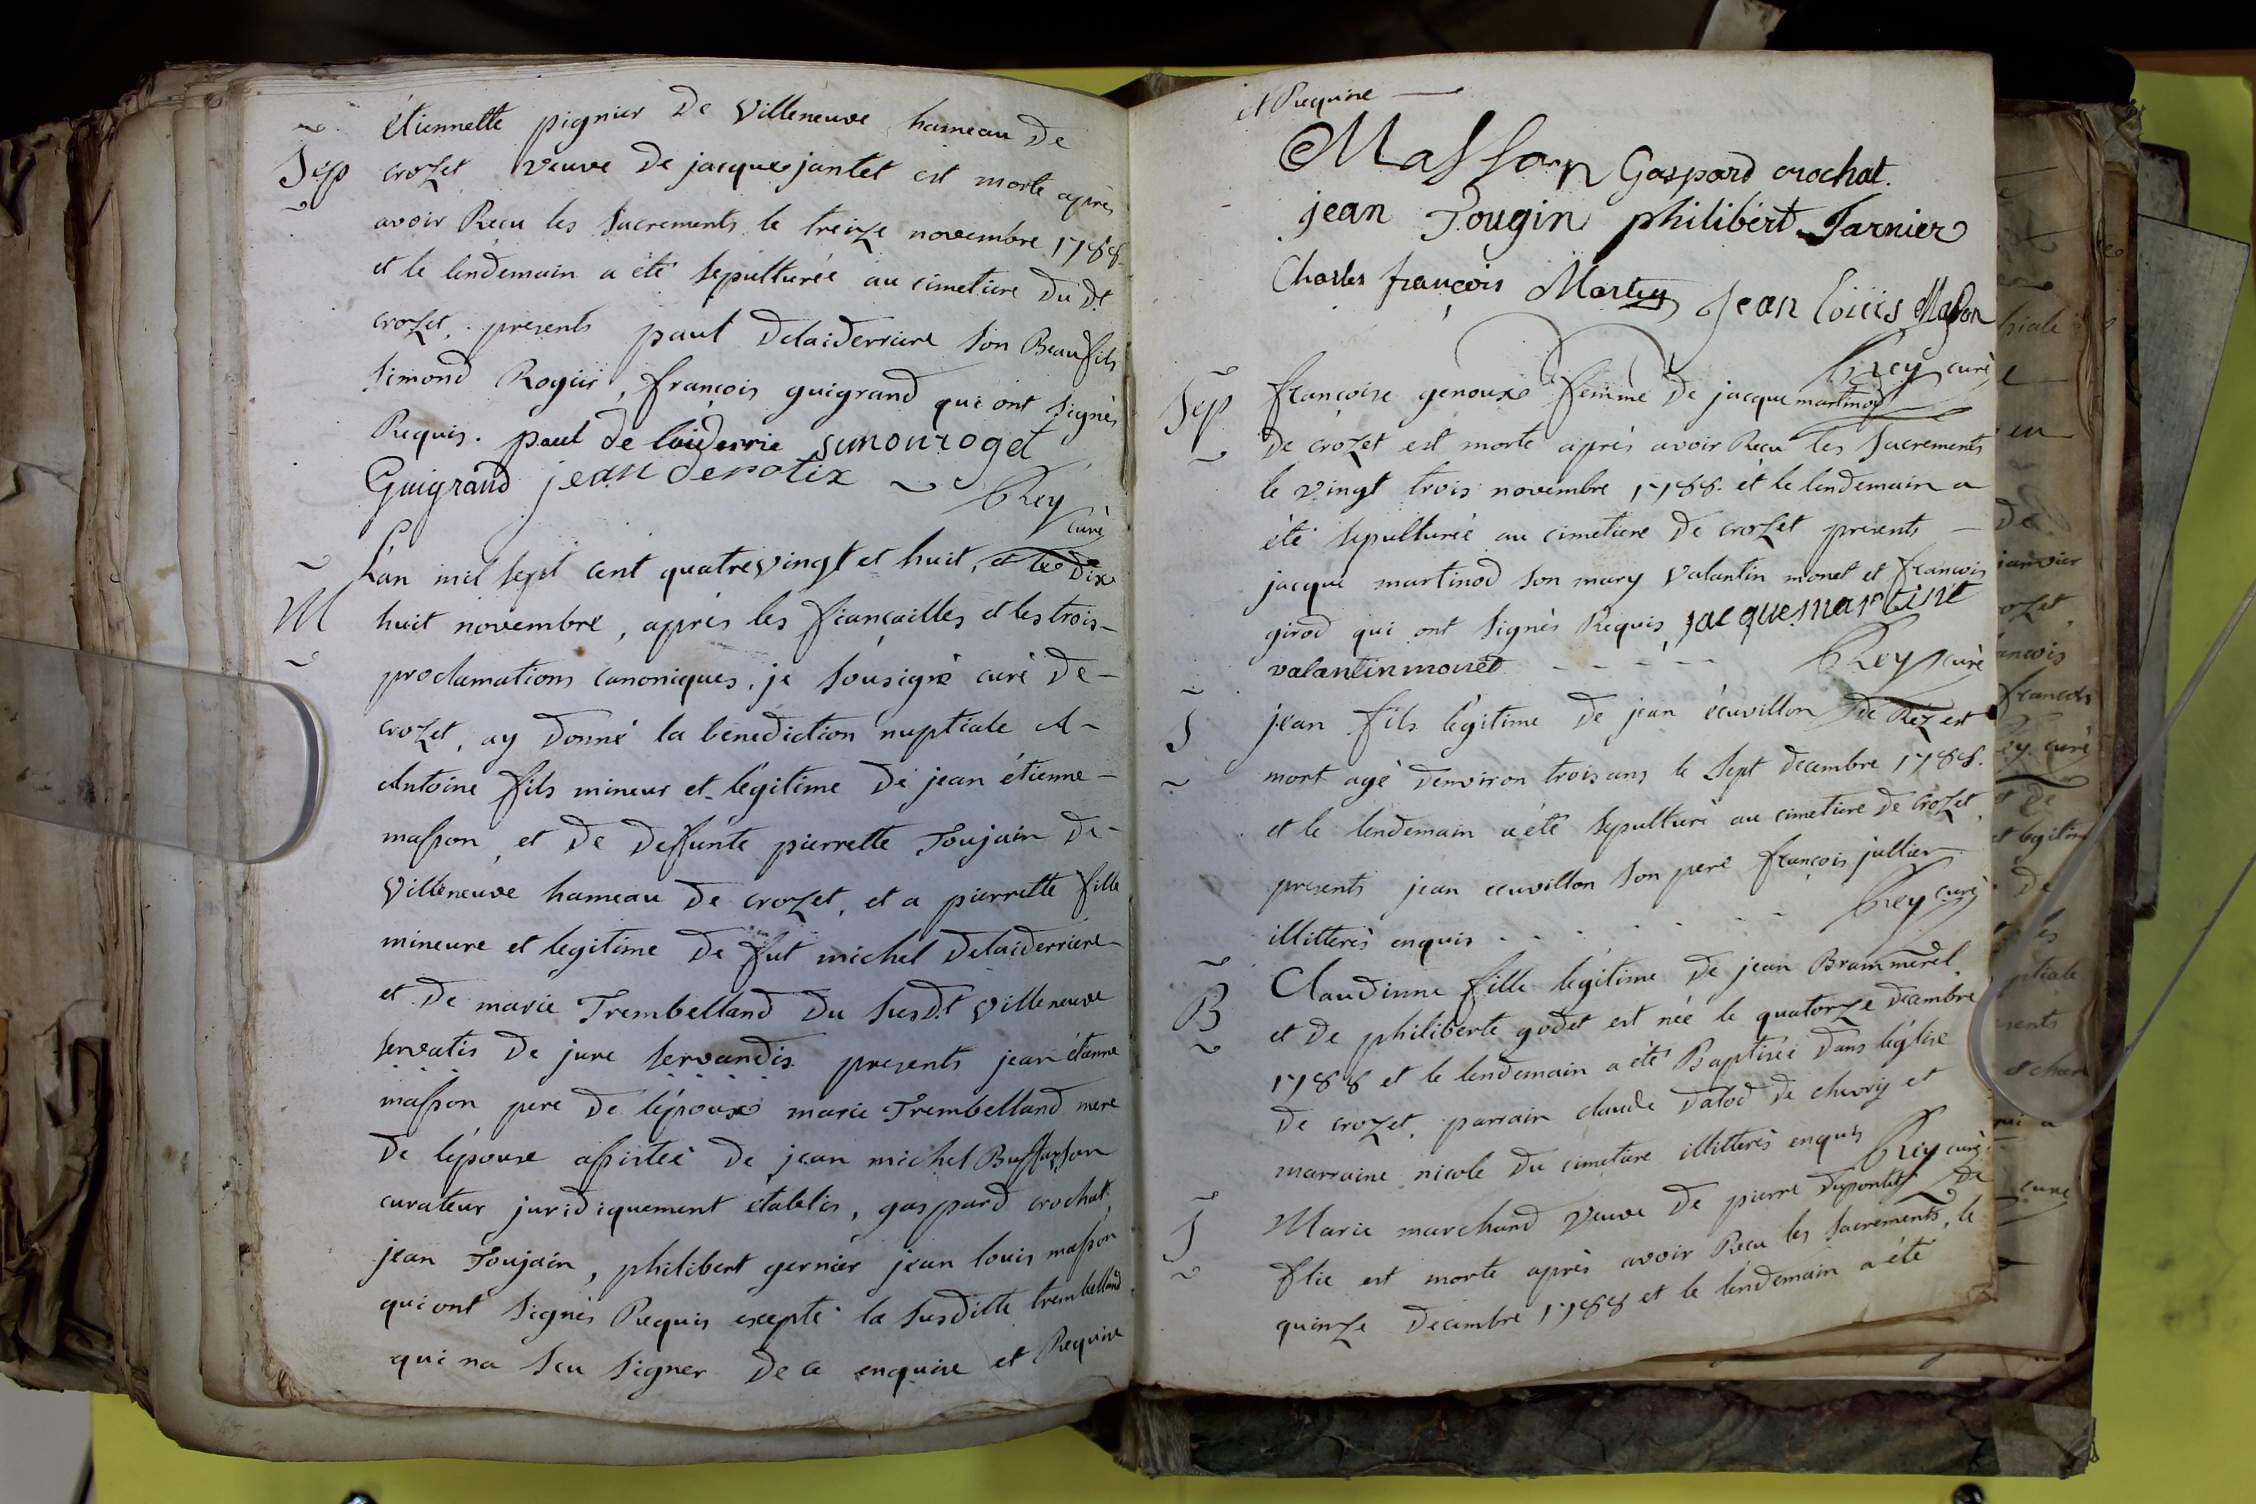 étiennette pignier de Villeneuve hameau de
Sep crozet veuve de jacque jantet est morte après
avoir Reçu les Sacrements le treize novembre 1788.
et le lendemain a été Sepulturée au cimetiere du dt
crozet, presents paul delaiderriere son Beaufils
Simond Rogué, françois guigrand qui ont signés
Requis. paul de laiderrie simon roget
Guigrand jean derotix Rey
curé
L'an mil sept cent quatrevingt et huit, et le dix
M huit novembre, après les fiancailles et les trois
proclamations canoniques, je sousigné curé de
crozet, ay donné la benediction nuptiale A
Antoine fils mineur et légitime de jean étienne
masson, et de deffunte pierrette Toujain de
Villeneuve hameau de crozet, et a pierrette fille
mineure et legitime de fut michel delaiderriere
et de marie Trembelland du susdt villeneuve
servatis de jure servandis. presents jean étienne
masson pere de l'époux marie Trembelland mere
de l'épouse assistée de jean michel
curateur juridiquement établis, gaspard crochat,
jean Toujain, philibert gernier jean louis masson
qui ont signés Requis excepté la susditte trembelland
qui na sçu signer de ce enquise et Requise
et Requise
Masson Gaspard crochat.
jean Tougin philibért Jarnier
Charles françois Martin Jean loüis Masson
Rey curé
Sep françoise genoux femme de jacque martinod
de crozet est morte après avoir Reçu les sacrements
le vingt trois novembre 1788. et le lendemain a
été sepulturée au cimetiere de crozet presents
jacque martinod son mary valantin monet et francois
girod qui ont signés Requis, jacque martine
valantin monet Rey curé
S jean fils légitime de jean écuvillon de Rez est
mort agé denviron trois ans le sept decembre 1788.
et le lendemain a été sepulturé au cimetiere de crozet,
presents jean ecuvillon son pere françois jullien
illitterés enquis Rey curé
B Claudinne fille légitime de jean Brammerel
et de philiberte godet est née le quatorze decembre
1788 et le lendemain a été Baptisée dans léglise
de crozet. parrain claude dalod de chevry et
marraine nicole du cimetiere illitterés enquis Rey curé
S Marie marchand veuve de pierre dupontet de
flie est morte après avoir Reçu les sacrements, le
quinze decembre 1788 et le lendemain a été